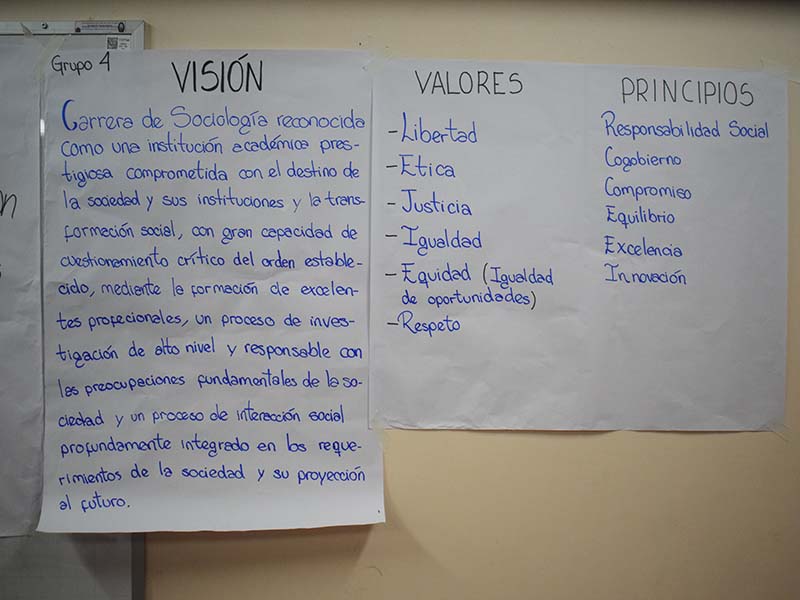 Grupo 4
VISIÓN
Carrera de Sociología reconocida
como una institución académica pres-
tigiosa comprometida con el destino de
la sociedad y sus instituciones y la trans-
formación social, con gran capacidad de
cuestionamiento crítico del orden estable-
cido, mediante la formación de excelen-
tes profecionales, un proceso de inves-
tigación de alto nivel y responsable con
las preocupaciones fundamentales de la so-
ciedad y un proceso de interacción social
profundamente integrado en los reque-
rimientos de la sociedad y su proyección
al futuro.
VALORES
- Libertad
- Etica
- Justicia
- Igualdad
- Equidad (Igualdad
de oportunidades)
- Respeto
PRINCIPIOS
Responsabilidad Social
Cogobierno
Compromiso
Equilibrio
Excelencia
Innovación